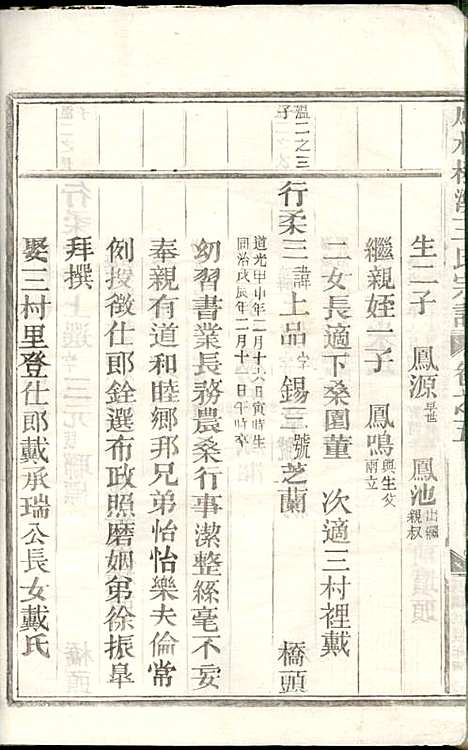 生二子 鳳源早世 鳳池出繼親叔
繼親姪一子 鳳鳴與生父兩立
二女長適下桑園董 次適三村裡戴
溫二之三子
行柔三諱上品字錫三號芝蘭 橋頭
道光甲申年二月十六日寅時生
同治戊辰年二月十一日午時卒
幼習書業長務農桑行事潔整絲毫不妄
奉親有道和睦鄉邦兄弟怡怡樂夫倫常
例授徵仕郎銓選布政照磨姻弟徐振皐
拜撰
娶三村里登仕郎戴承瑞公長女戴氏